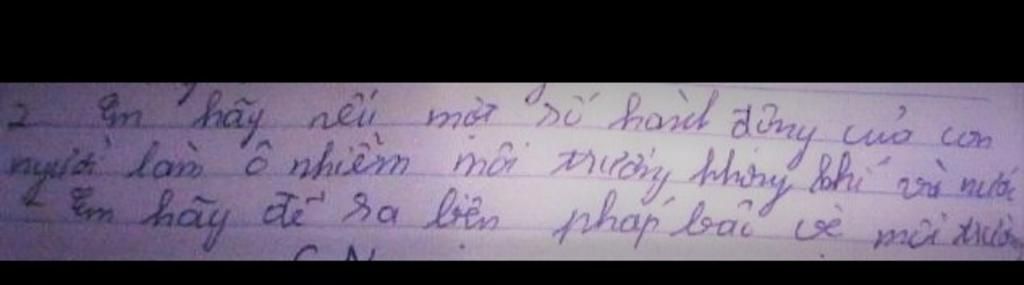 2 Em hãy nêu một số hành động của con
người làm ô nhiễm môi trường không khí và nước
Em hãy đề ra biện pháp bảo vệ môi trường